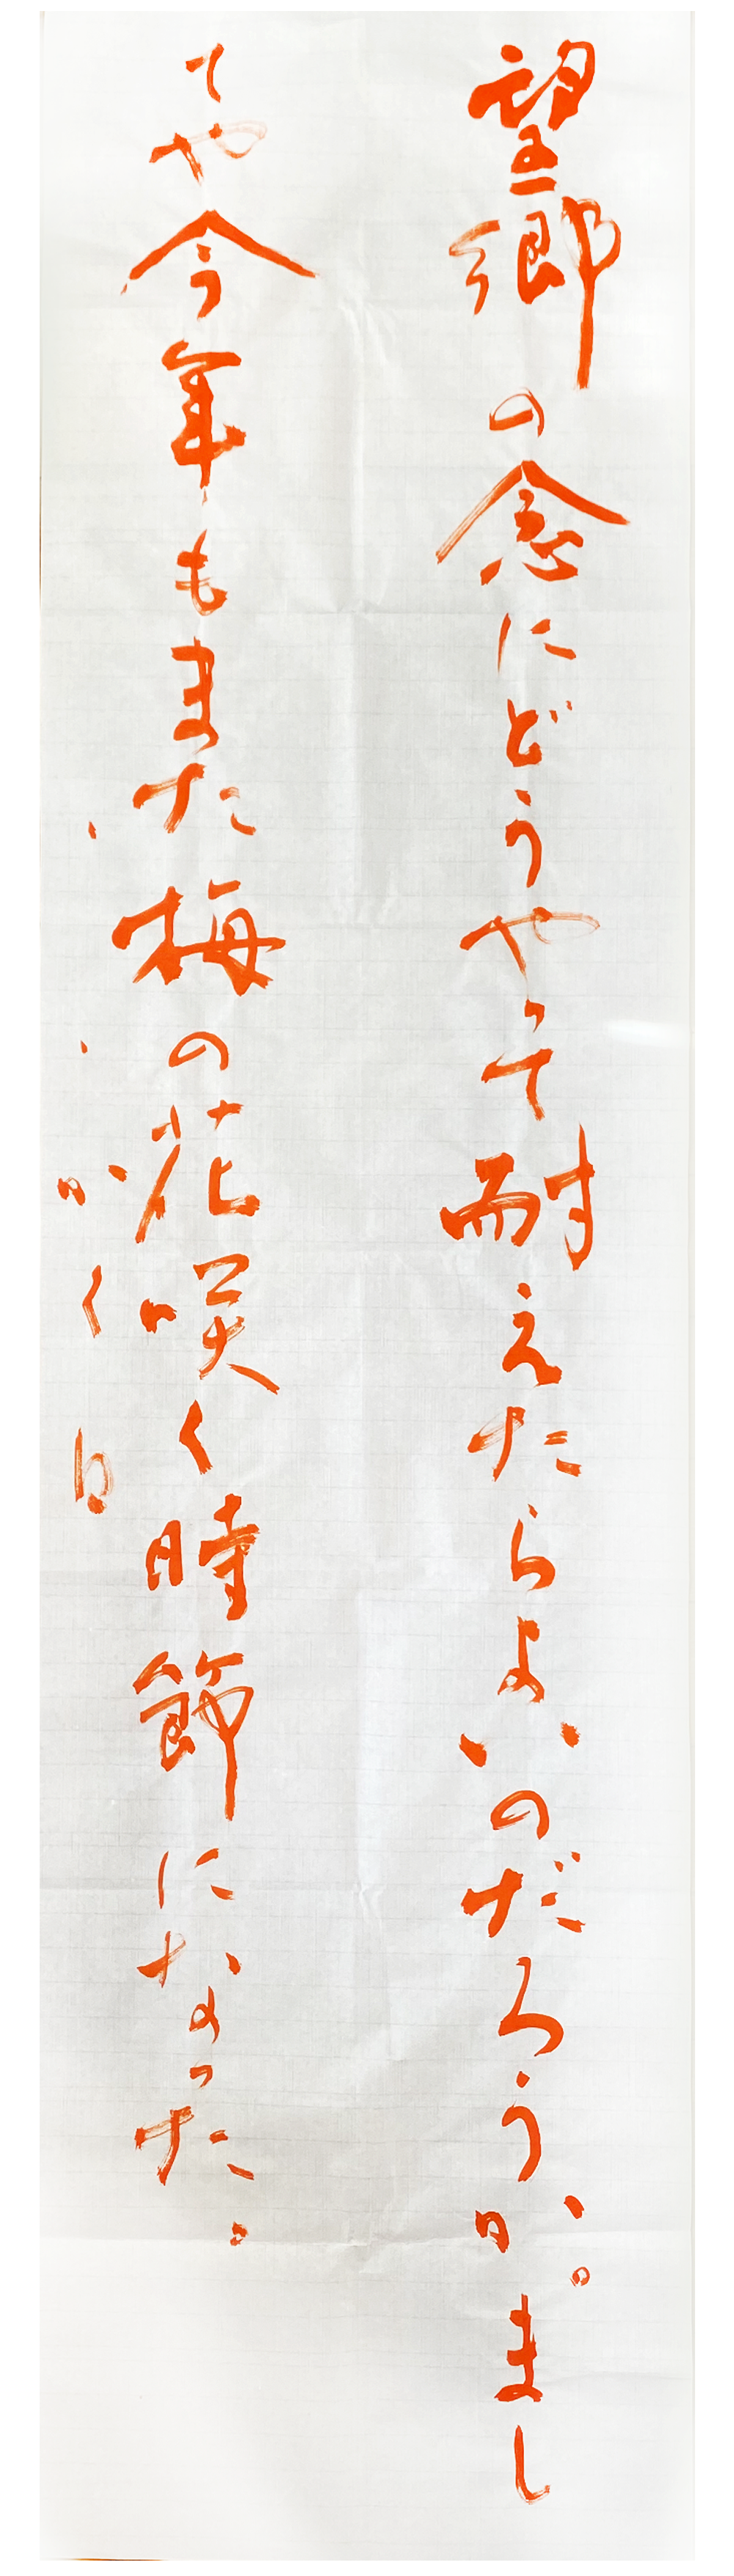 望郷の念にどうやって耐えたらよいのだろうか。まし
てや今年もまた梅の花咲く時節になった。
かく_